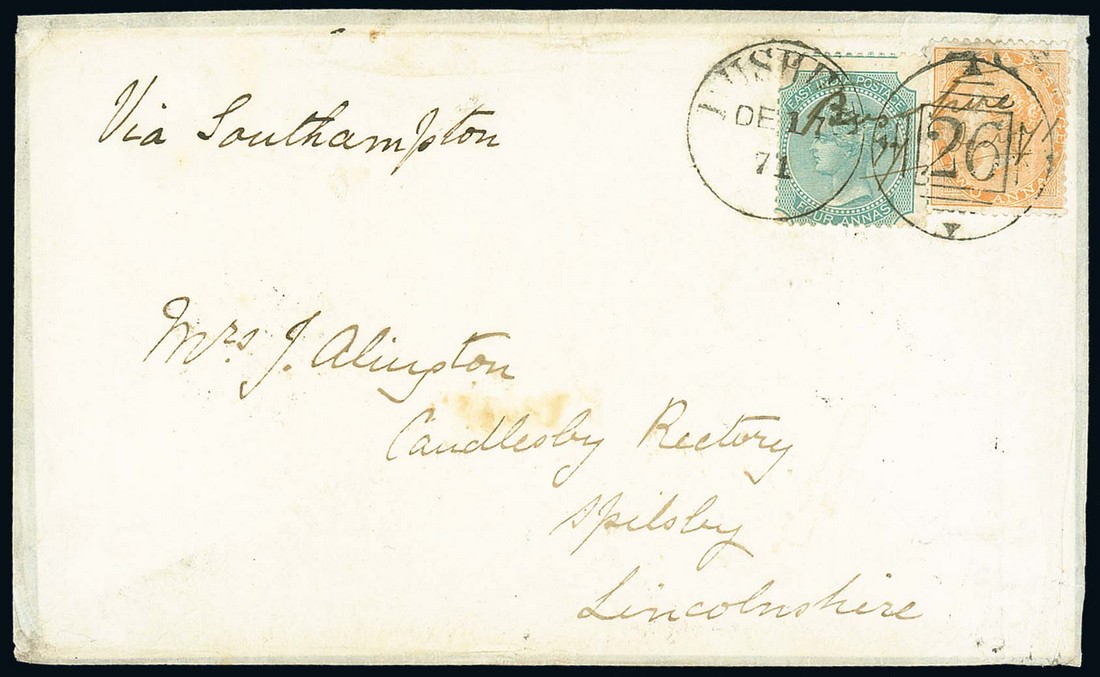 Via Southampton
DE 17
71
EAST INDIA POSTAGE
FOUR ANNAS
26
Mrs. J. Alington
Candlesby Rectory
Spilsby
Lincolnshire